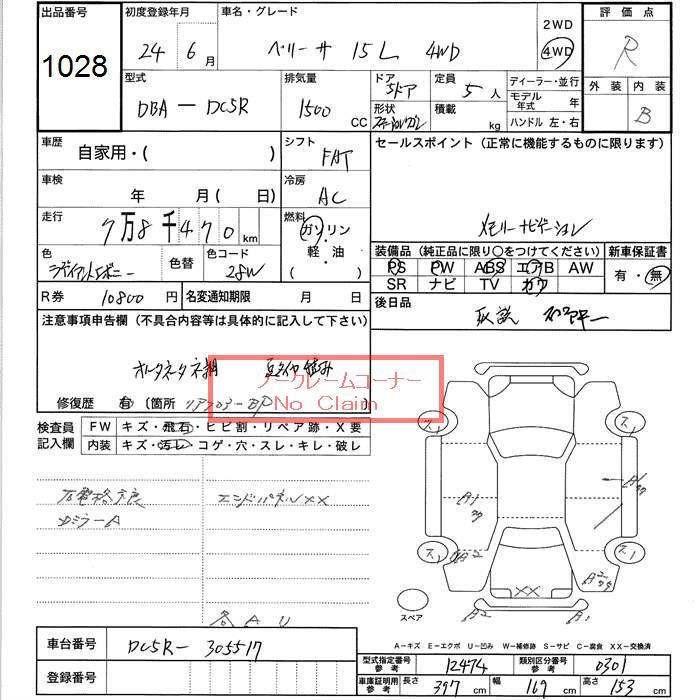 出品番号
1028
初度登録年月
24 6 月
車名・グレード
ベリーサ 15L 4WD
2WD
4WD
評価点
R
外装 内装
B
型式
DBA－DC5R
排気量
1500 CC
ドア
5ドア
形状
定員
5 人
積載
kg
ディーラー・並行
モデル年式 年
ハンドル 左・右
車歴
自家用・( )
シフト
FAT
セールスポイント (正常に機能するものに限ります)
メモリーナビゲーション
車検
年 月 ( 日)
冷房
AC
走行
7万8千470 km
燃料
ガソリン
軽・油
( )
色
色替
色コード
28W
装備品 (純正品に限り○をつけてください)
PS PW ABS エアB AW
SR ナビ TV カワ
新車保証書
有・無
R券 10800 円
名変通知期限 月 日
後日品
取説
注意事項申告欄 (不具合内容等は具体的に記入して下さい)
ノークレームコーナー
No Claim
修復歴 有 (箇所 )
検査員記入欄
FW キズ・飛石・ヒビ割・リペア跡・X要
内装 キズ・汚レ・コゲ・穴・スレ・キレ・破レ
エンドパネルXX
ミラーA
各AU
ス1
ス1
A1
A2
XX
ス1
ス1
A2
A2
A1
スペア
A－キズ E－エクボ U－凹み W－補修跡 S－サビ C－腐食 XX－交換済
車台番号 DC5R－305517
登録番号
型式指定番号参考 12474
類別区分番号参考 0301
車庫証明用参考 長さ 397 cm 幅 169 cm 高さ 153 cm